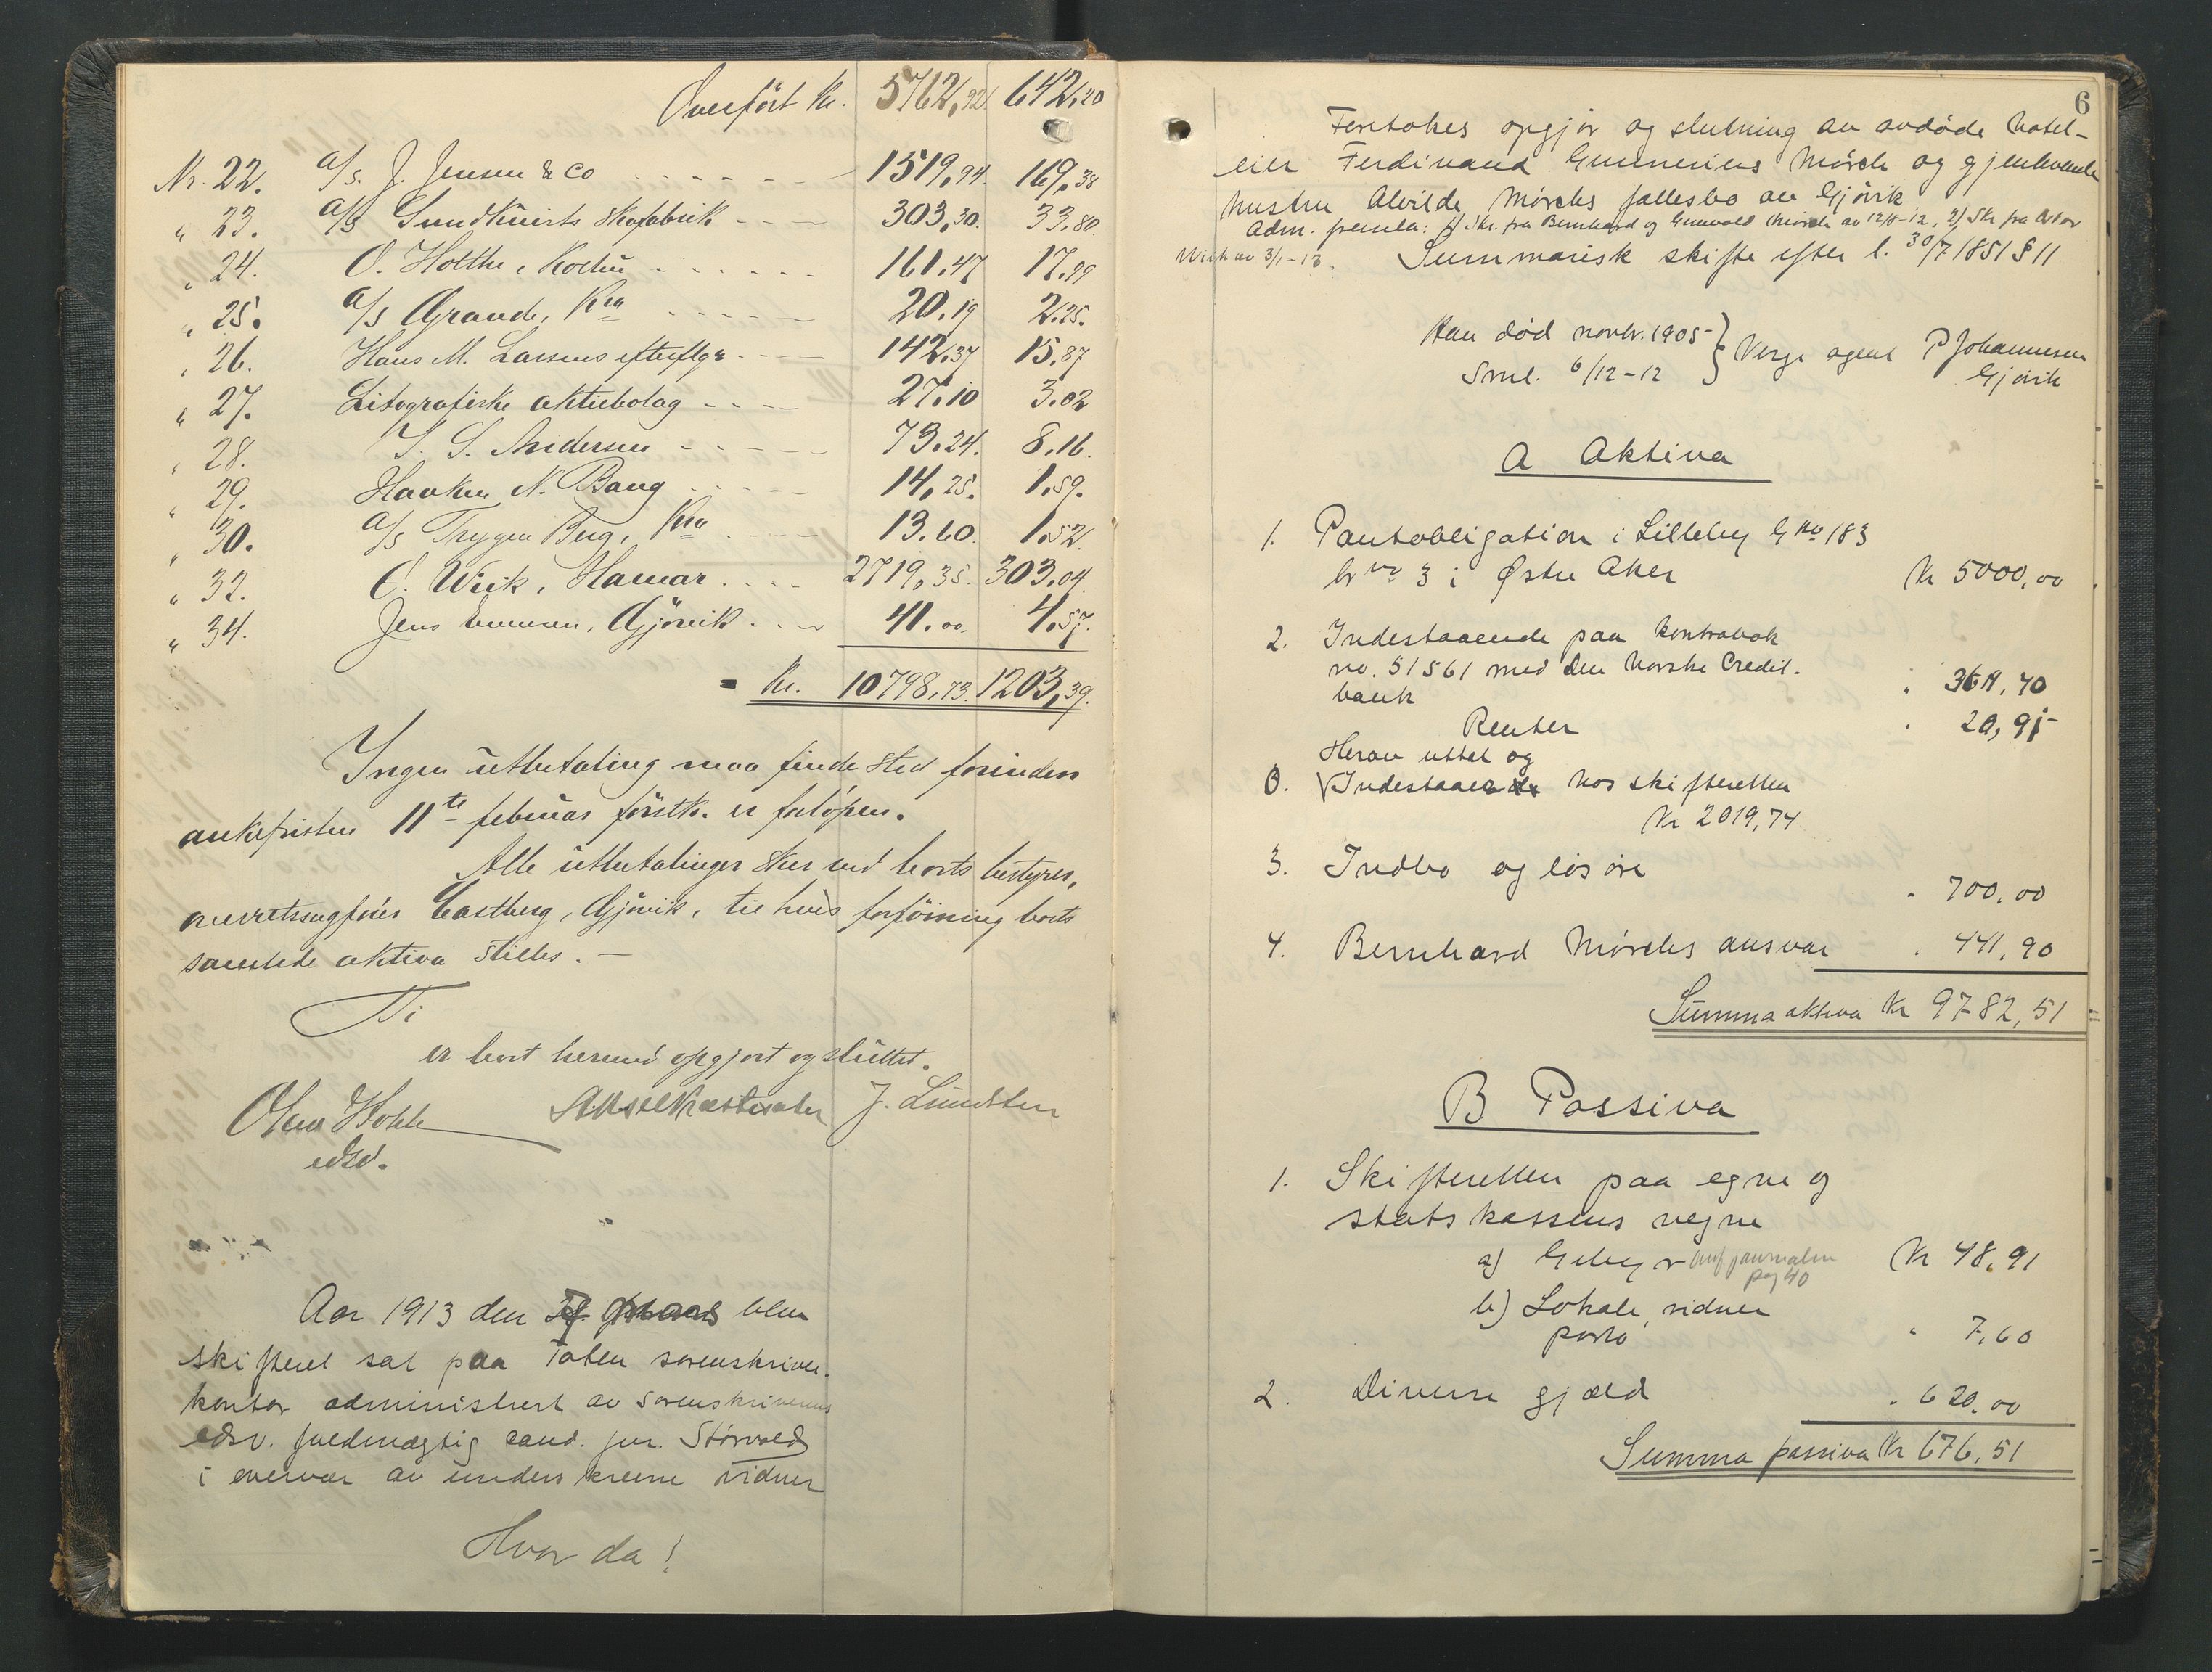 Overført Kr. 5762,92 642,20
Nr. 22. a/s. J. Jensen & Co 1519,94. 169,38
" 23. a/s Sundkvists Skofabrik 303,30. 33,80.
" 24. O. Holthe, Kolbu 161,47 17,99
" 25. a/s Grande, Kra 20,19 2,25.
" 26. Hans M. Lassens efterflgr. 142,37 15,87
" 27. Litografiske aktiebolag 27,10 3,02
" 28. S. Andersen 73,24. 8,16.
" 29. Haaken N. Bang 14,25. 1,59.
" 30. a/s Trygve Berg, Kra 13,60. 1,52.
" 32. C. Wiik, Hamar. 2719,35. 303,04
" 34. Jens Gjøvik 41,00. 4,57.
= Kr. 10798,73. 1203,39.
Ingen utbetaling maa finde sted forinden
ankefristen 11te februar førstk. er forløpen.
Alle utbetalinger sker ved boets bestyrer,
overretssagfører Castberg, Gjøvik, til hvis forføining boets
samlede aktiva stilles. —
Ti
er boet hermed opgjort og sluttet.
J. Lundsten
edsv.
Aar 1913 den blev
skifteret sat paa Toten sorenskriver-
kontor administrert av sorenskriverens
edsv. fuldmægtig cand. jur. Størvold
i overvær av underskrevne vidner
Hvor da!
6
Foretokes opgjør og slutning av avdøde hotel-
eier Ferdinand Gunnerius Mørch og gjenlevende
hustru Alvilde Mørchs fællesbo av Gjøvik
Adm. fremla: 1) Skr. fra Bernhard og Mørch av 12/11-12, 2) Skr fra
av 3/1-13. Summarisk skifte efter l. 30/7 1851 § 11
Han død novbr. 1905 } Verge agent P Johannesen
Sml. 6/12-12 Gjøvik
A Aktiva
1. Pantobligation i Lilleby G no 183
br no 3 i Østre Aker Kr 5000,00
2. Indestaaende paa kontrabok
no. 51561 med Den Norske Credit-
bank " 3619,70
Renter " 20,91
Herav uttat og
Indestaaer hos skifteretten
Kr 2019,74
3. Indbo og løsøre " 700,00
4. Bernhard Mørchs ansvar " 441,90
Summa aktiva Kr 9782,51
B Passiva
1. Skifteretten paa egne og
statskassens vegne
a) Gebyr journalen Kr 48,91
pag 40
b) Lokale, vidner
porto " 7,60
2. Diverse gjæld " 620,00
Summa passiva Kr 676,51